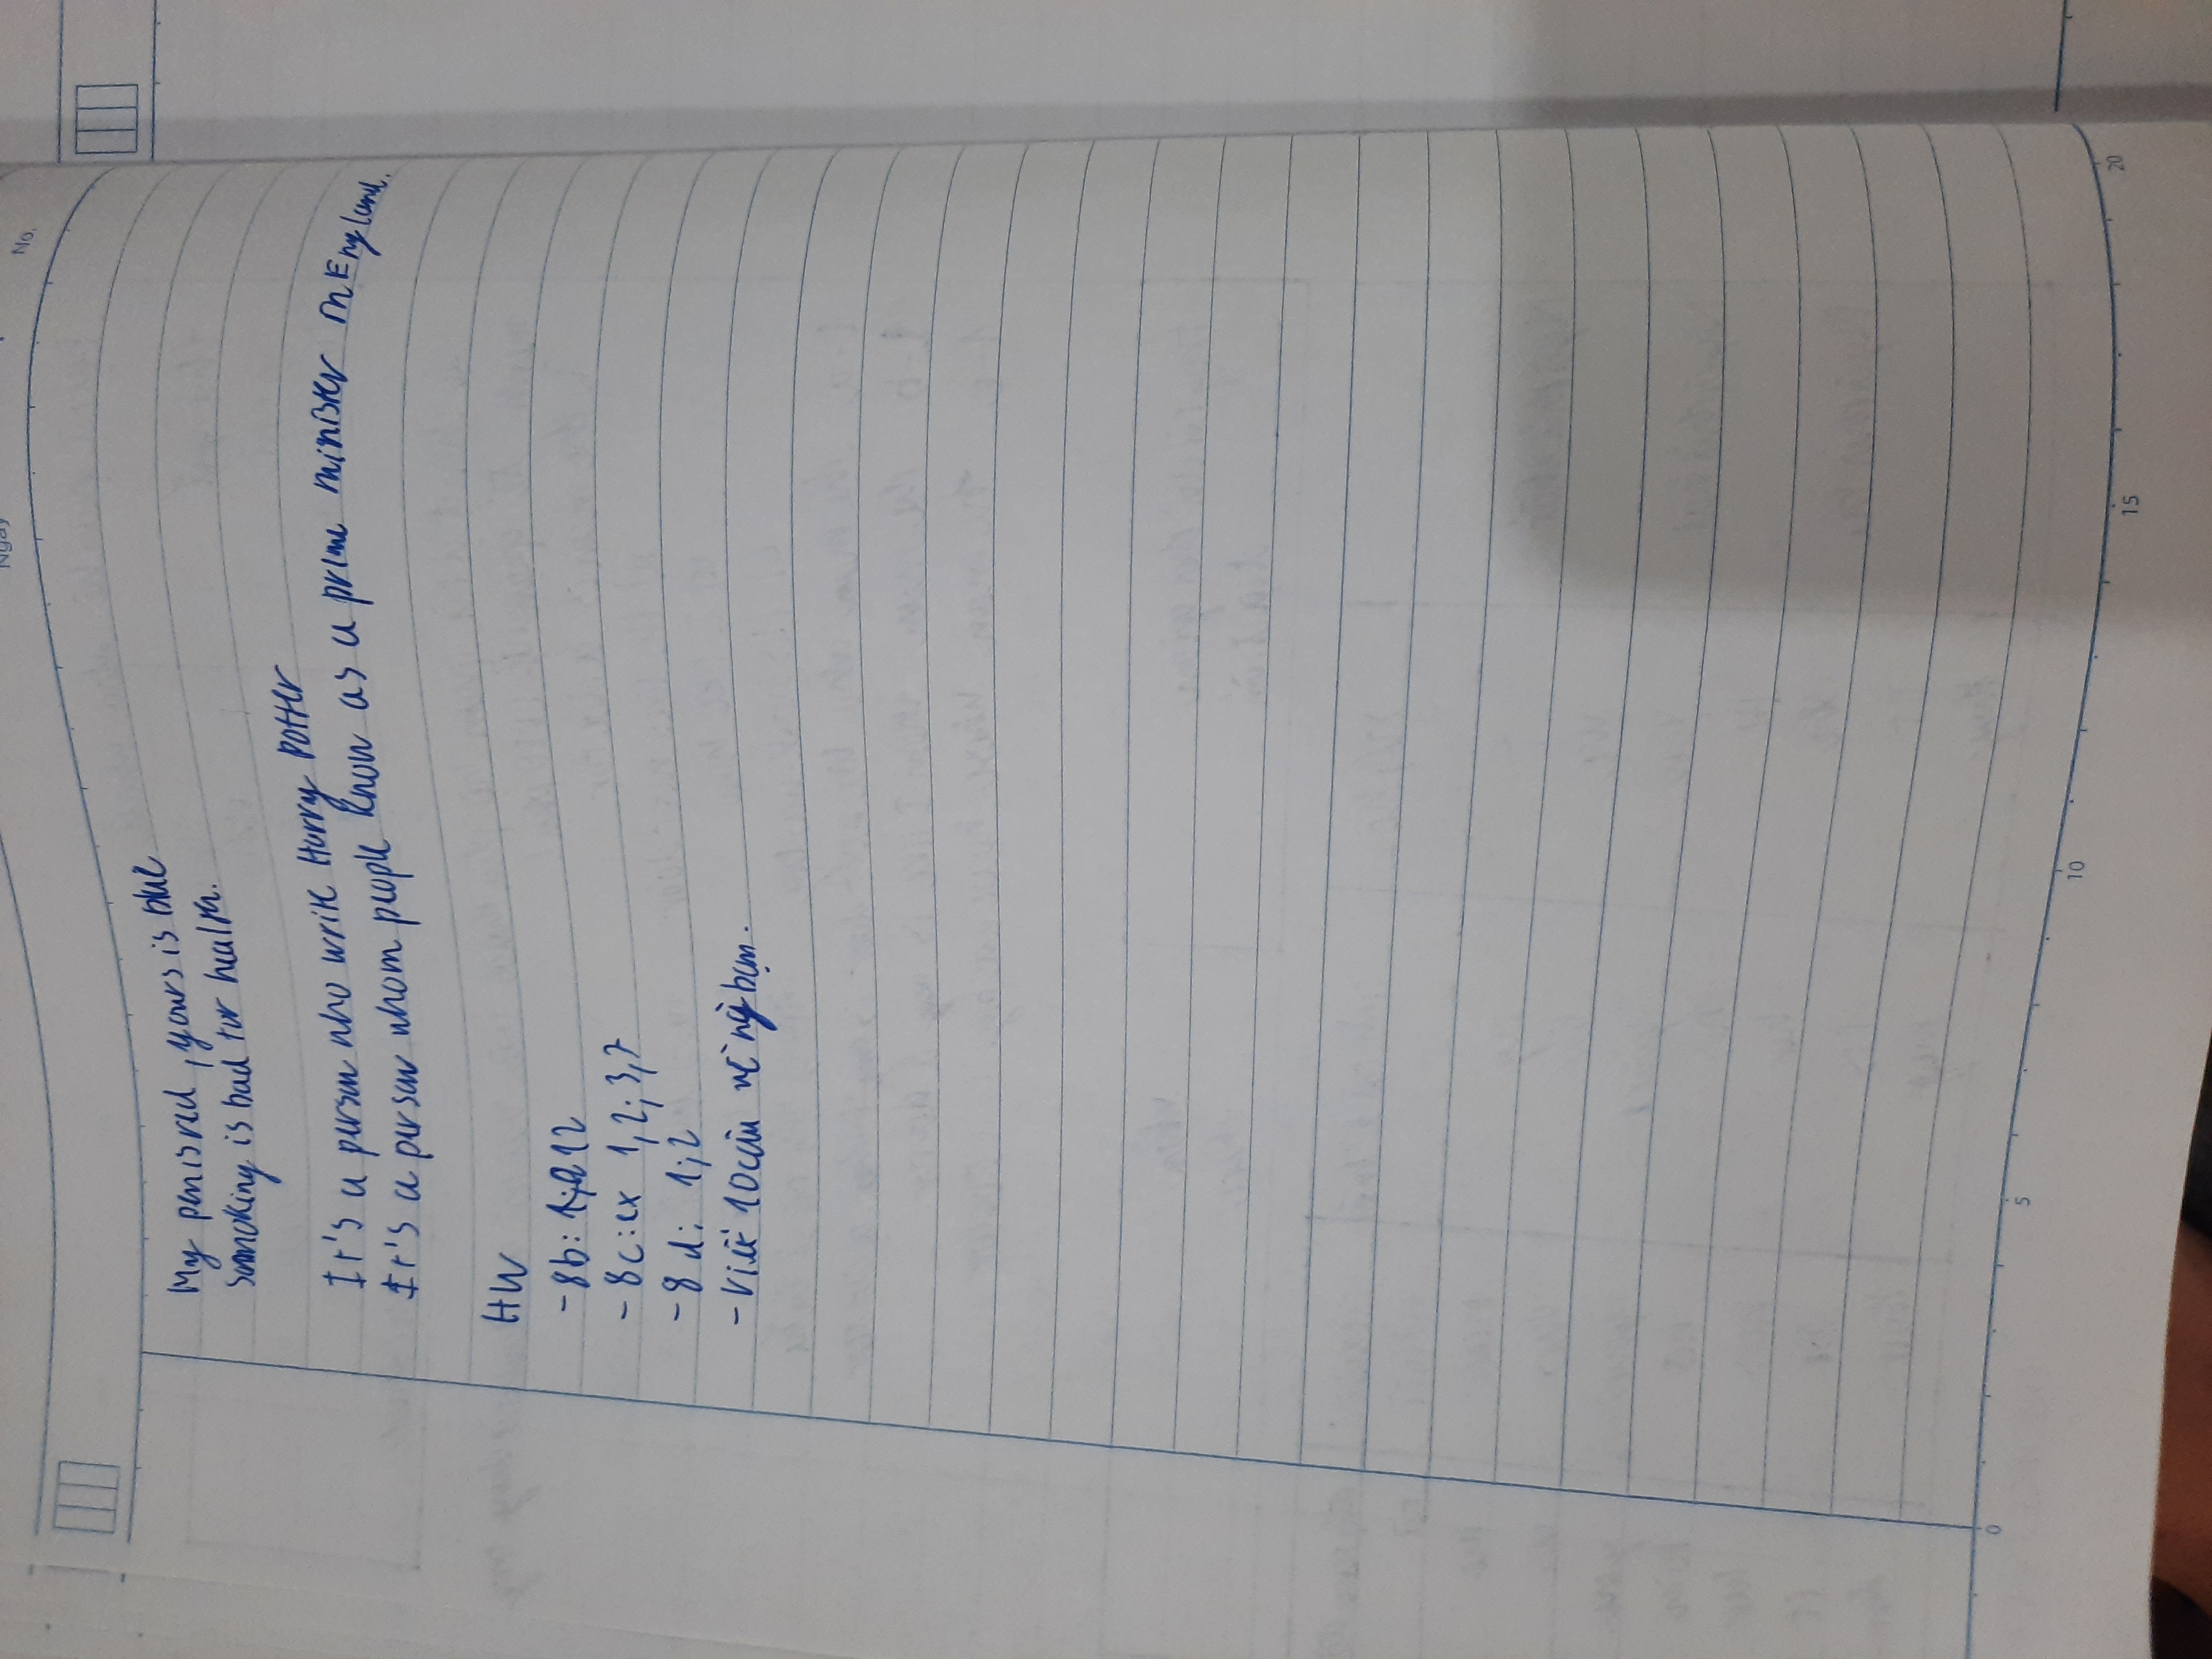 Ngày
No.
My pen is red, yours is blue
Smoking is bad for health.
It's a person who write Harry Potter
It's a person whom people know as a prime minister in England.
HW
- 8b: 1;2 12
- 8c: ex 1,2; 3,7
- 8d: 1;2
- Viết 10 câu về ng bạn.
0
5
10
15
20